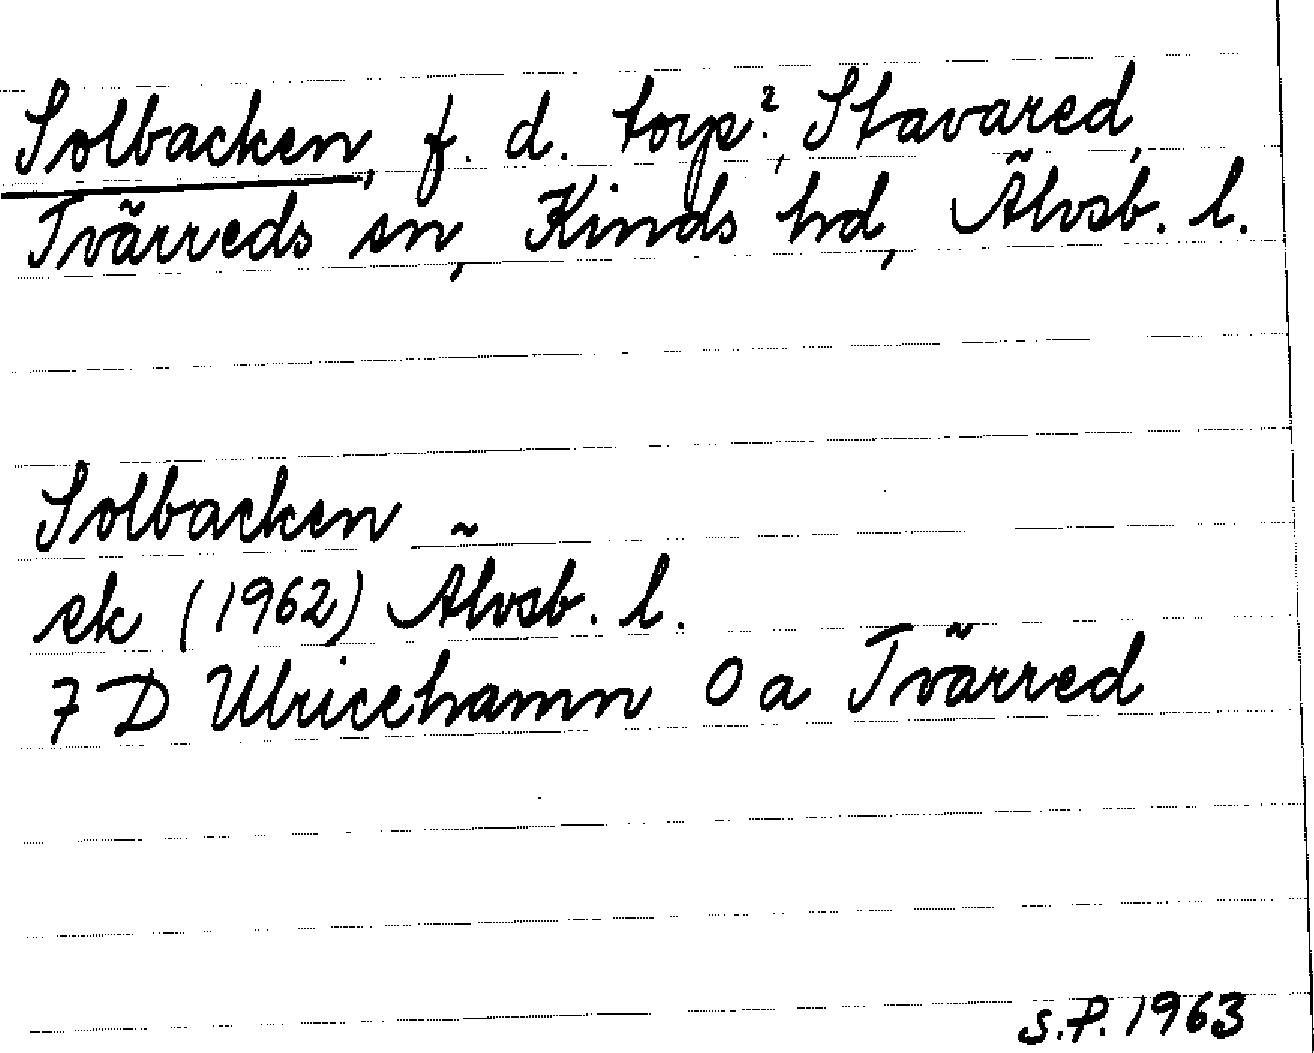 Solbacken, f. d. torp?, Stavared,
Tvärreds sn, Kinds hd, Älvsb. l.
Solbacken
ek (1962) Älvsb. l.
7 D Ulricehamn 0 a Tvärred
S.P. 1963